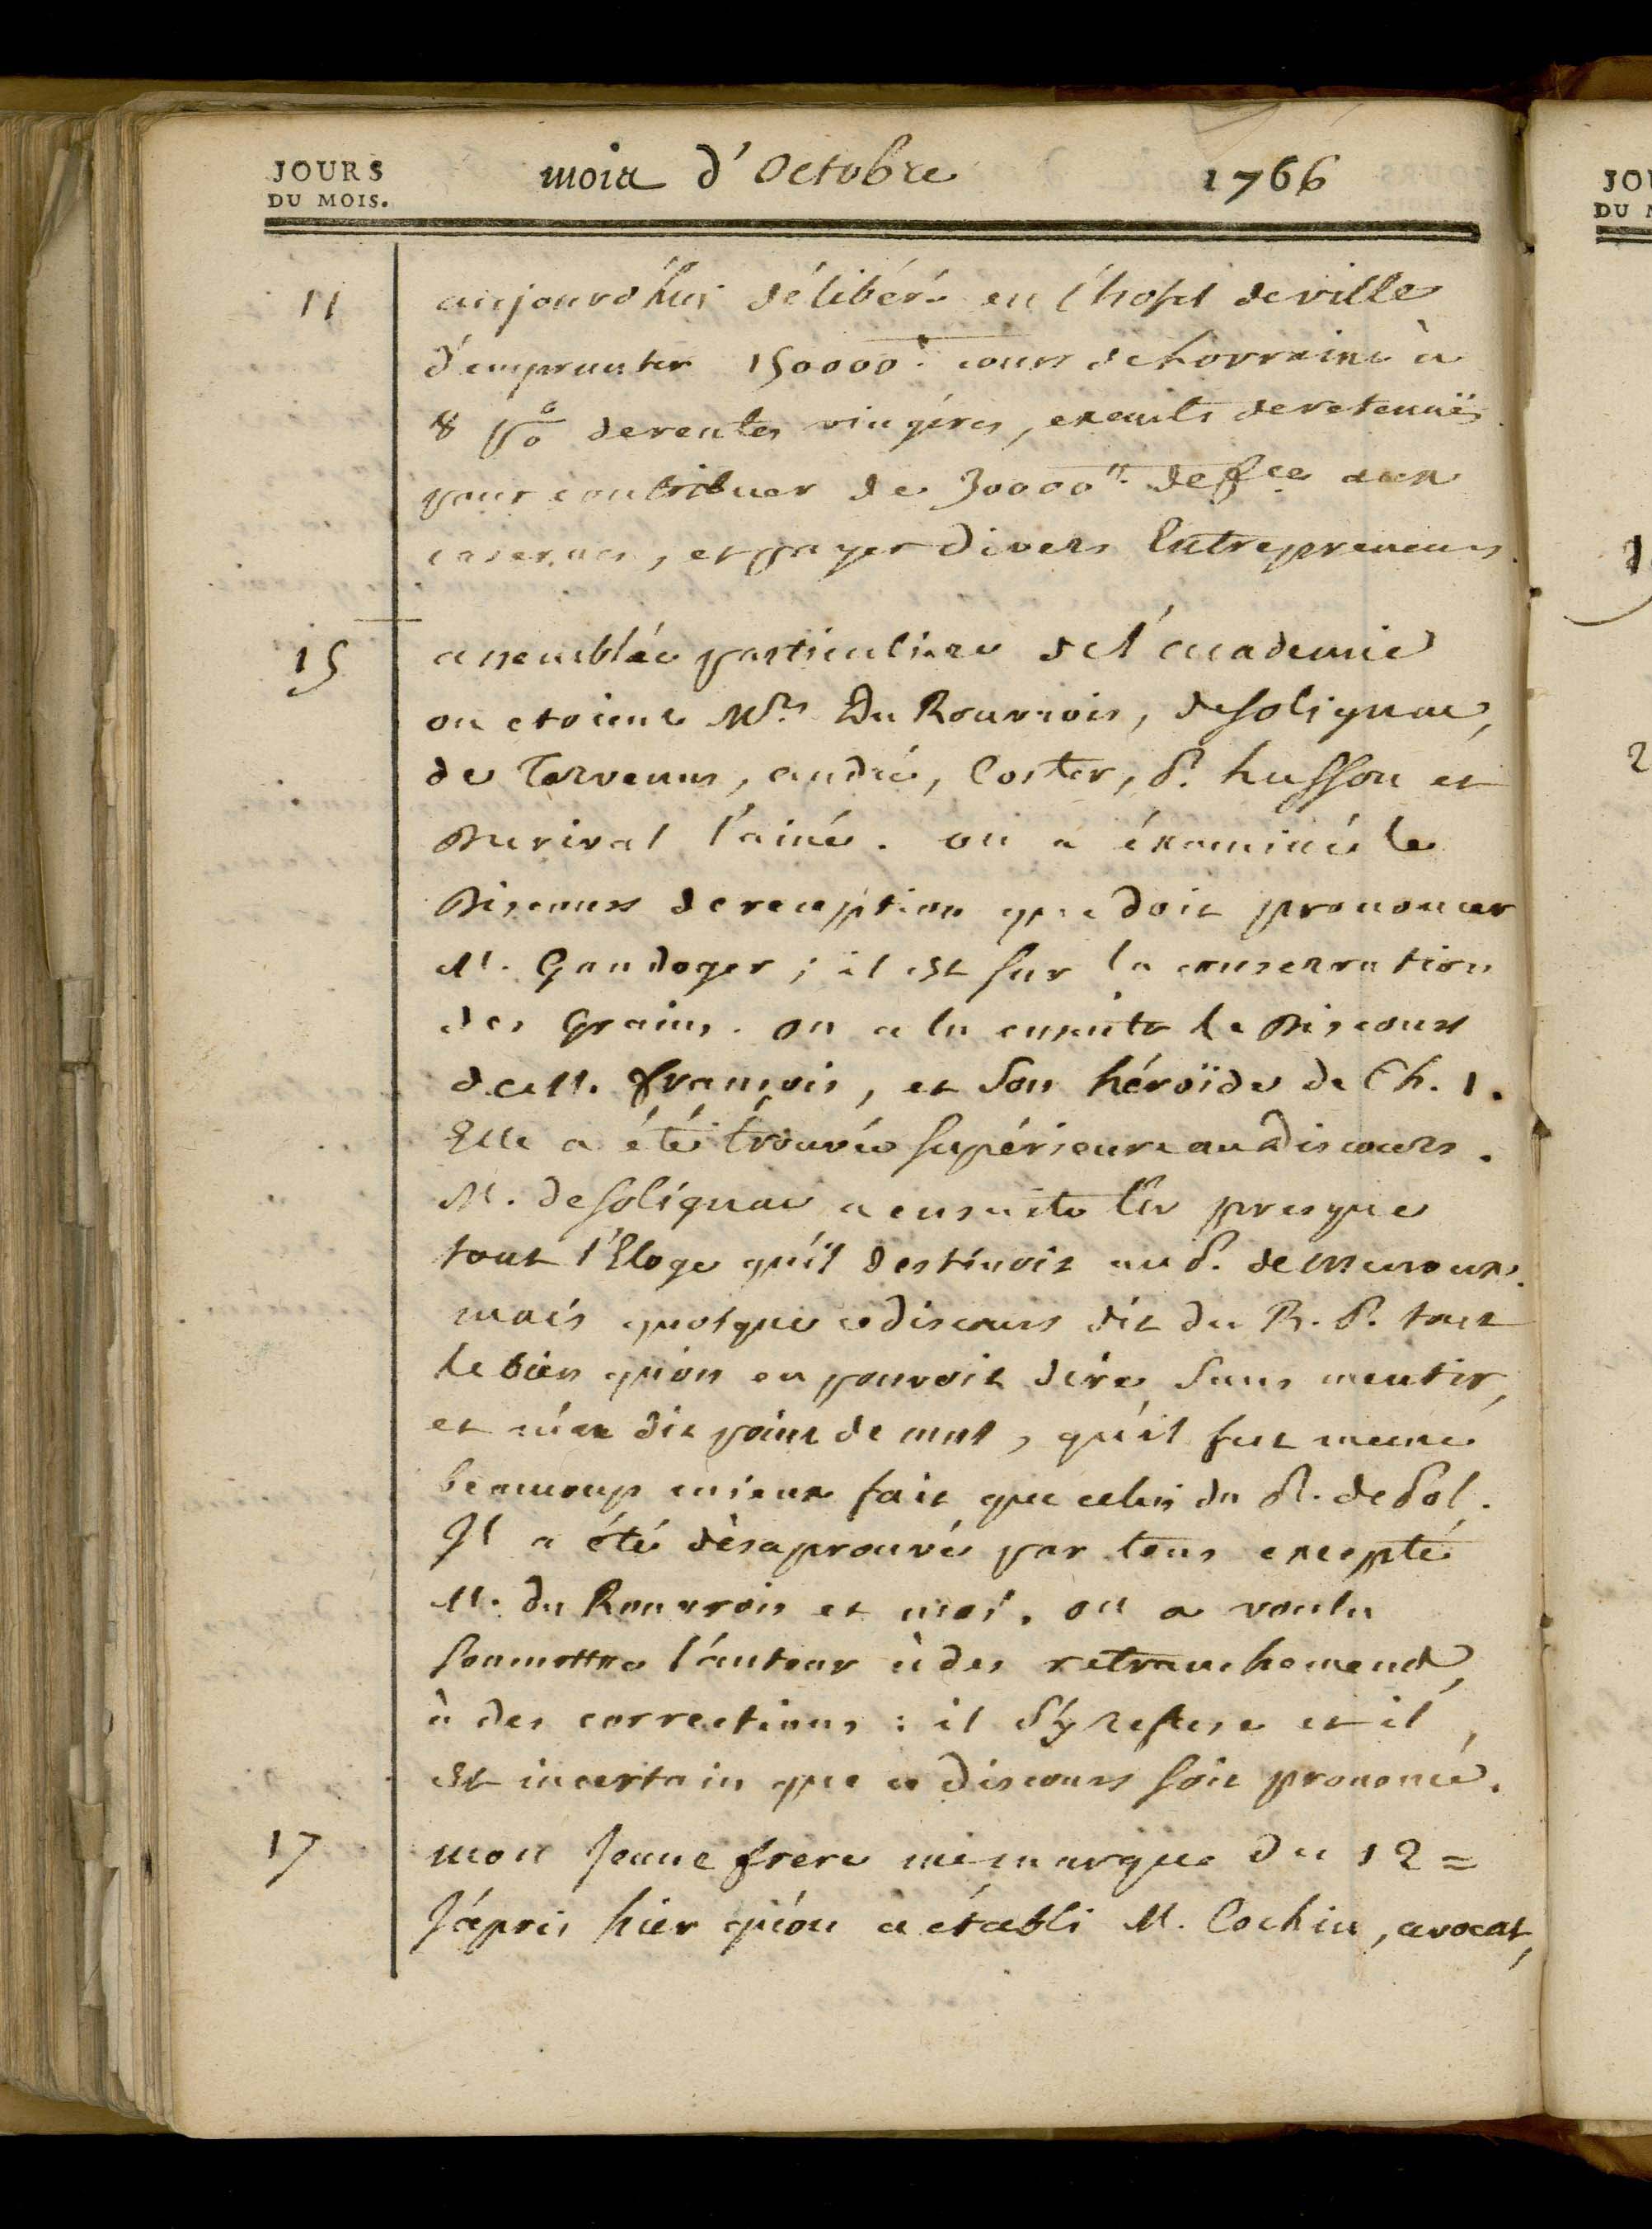 JOURS
DU MOIS.
mois d'Octobre 1766
11 aujourd'hui délibéré en l'hotel de ville
d'emprunter 150000 cours de Lorraine à
8 p% de rentes viagéres, exemts de retenuë
pour contribuer de 30000 de fce aux
casernes, et payer divers Entrepreneurs.
15 assemblée particuliere de l'academie
ou etoient Mrs. Du Rouvrois, de Solignac,
de Tervenus, andré, Coster, P. husson et
Durival l'ainé. on a éxaminé le
Discours de reception que doit prononcer
M. Gandoger; il est sur la conservation
des grains. on a lu ensuite le Discours
de M. françois, et son héroïde de Ch. 1.
Elle a été trouvée supérieure au discours.
M. de Solignac a ensuite lu presque
tout l'Eloge qu'il destinoit au P. de Menoux.
mais quoique ce discours dit du R. P. tout
le bien qu'on en pouvoit dire sans mentir,
et n'en dit point de mal, qu'il fut meme
beaucoup mieux fait que celui du R. de Pol.
Il a été dèsaprouvé par tous excepté
M. du Rouvrois et moi. on a voulu
soumettre l'auteur à des retranchemens,
à des corrections : il s'y refuse et il
est incertain que ce discours soit prononcé.
17 mon Jeune frere me marque du 12 =
J'apris hier qu'on a établi M. Cochin, avocat,
JOU
DU M